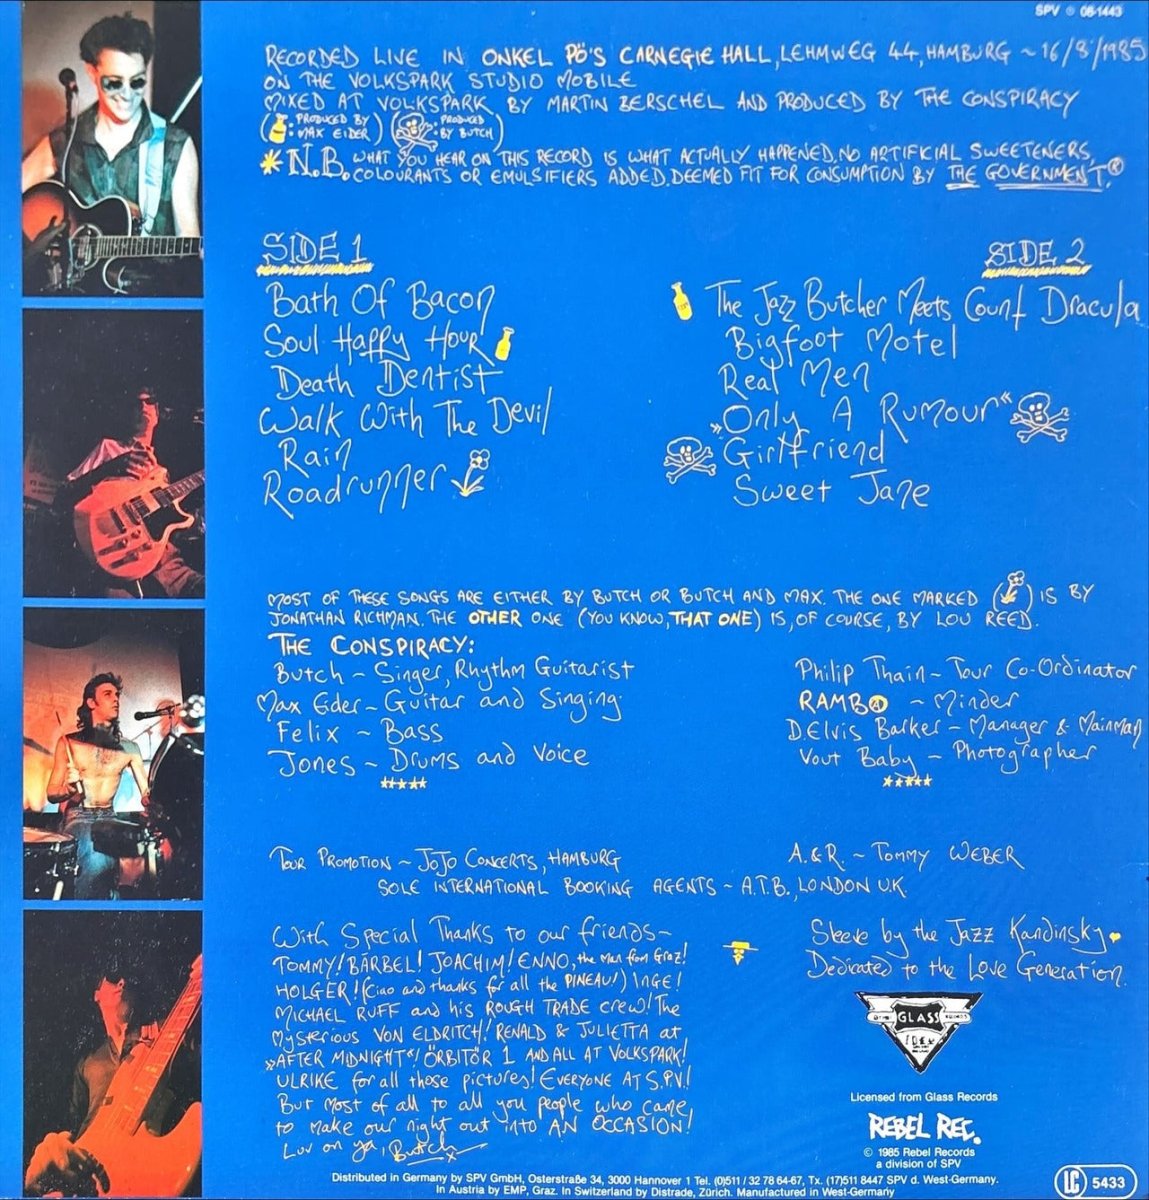 SPV ℗ 08-1443
RECORDED LIVE IN ONKEL PÖ'S CARNEGIE HALL, LEHMWEG 44, HAMBURG ~ 16/8/1985
ON THE VOLKSPARK STUDIO MOBILE
MIXED AT VOLKSPARK BY MARTIN BERSCHEL AND PRODUCED BY THE CONSPIRACY
( : PRODUCED BY MAX EIDER) ( : PRODUCED BY BUTCH)
* N.B. WHAT YOU HEAR ON THIS RECORD IS WHAT ACTUALLY HAPPENED. NO ARTIFICIAL SWEETENERS,
COLOURANTS OR EMULSIFIERS ADDED. DEEMED FIT FOR CONSUMPTION BY THE GOVERNMENT.®
SIDE 1
Bath Of Bacon
Soul Happy Hour
Death Dentist
Walk With The Devil
Rain
Roadrunner
SIDE 2
The Jazz Butcher Meets Count Dracula
Bigfoot Motel
Real Men
»Only A Rumour«
Girlfriend
Sweet Jane
MOST OF THESE SONGS ARE EITHER BY BUTCH OR BUTCH AND MAX. THE ONE MARKED ( ) IS BY
JONATHAN RICHMAN. THE OTHER ONE (YOU KNOW, THAT ONE) IS, OF COURSE, BY LOU REED.
THE CONSPIRACY:
Butch ~ Singer, Rhythm Guitarist
Max Eider ~ Guitar and Singing
Felix ~ Bass
Jones ~ Drums and Voice
*****
Philip Thain ~ Tour Co-Ordinator
RAMBO ~ Minder
D.Elvis Barker ~ Manager & Mainman
Vout Baby ~ Photographer
*****
TOUR PROMOTION ~ JOJO CONCERTS, HAMBURG
A.&R. ~ TOMMY WEBER
SOLE INTERNATIONAL BOOKING AGENTS ~ A.T.B., LONDON U.K.
With Special Thanks to our friends ~
TOMMY! BÄRBEL! JOACHIM! ENNO, the Man from Graz!
HOLGER! (Ciao and thanks for all the PINEAU!) INGE!
MICHAEL RUFF and his ROUGH TRADE crew! The
Mysterious VON ELDRITCH! RENALD & JULIETTA at
»AFTER MIDNIGHT«! ÖRBITÖR 1 AND ALL AT VOLKSPARK!
ULRIKE for all those pictures! EVERYONE AT S.P.V.!
But most of all to all you people who came,
to make our night out into AN OCCASION!
Luv on ya, Butch x
Sleeve by the Jazz Kandinsky
Dedicated to the Love Generation.
GLASS
RECORDS
Licensed from Glass Records
REBEL REC.
© 1985 Rebel Records
a division of SPV
Distributed in Germany by SPV GmbH, Osterstraße 34, 3000 Hannover 1 Tel. (0)511 / 32 78 64-67, Tx. (17)511 8447 SPV d. West-Germany.
In Austria by EMP, Graz. In Switzerland by Distrade, Zürich. Manufactured in West-Germany
LC 5433